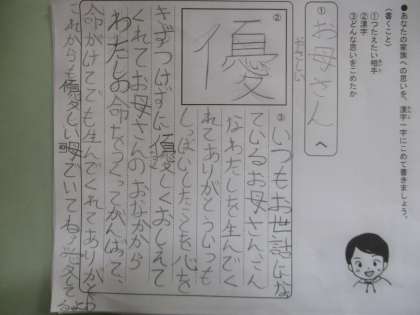 ●あなたの家族への思いを、漢字一字にこめて書きましょう。
〈書くこと〉
①つたえたい相手
②漢字
③どんな思いをこめたか
①
お母さん へ
②
優
③
いつもお世話になっ
ているお母さんこん
なわたしを生んでく
れてありがとういつも
しっぱいしたことを心を
きずつけずに優しくおしえて
くれてお母さんのおなかから
わたしの命をつくってがんばって、
命がけてでも生んでくれてありがとう
これからも優しい母でいてね。